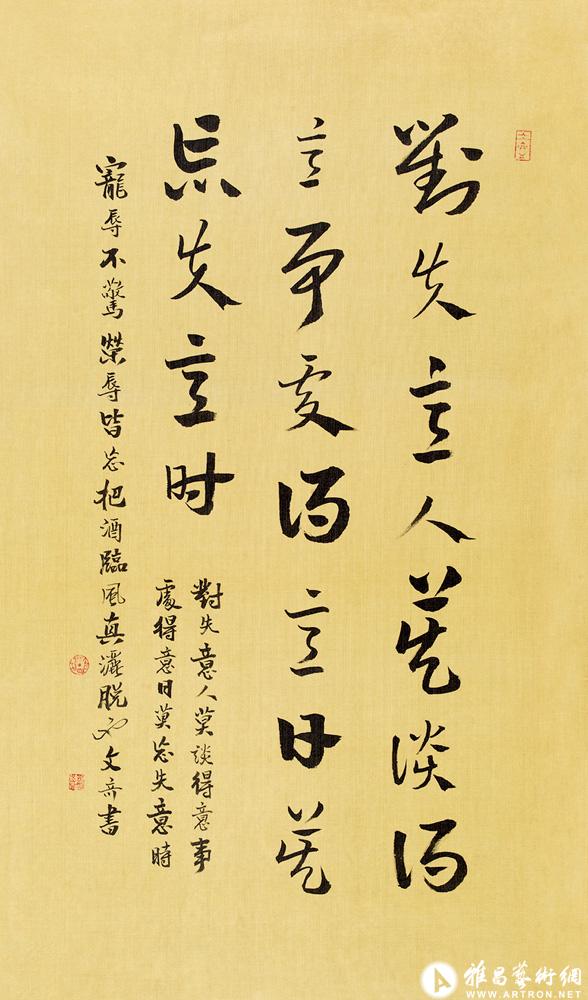 對失意人莫談得
意事處得意日莫
忘失意时
對失意人莫談得意事
處得意日莫忘失意時
寵辱不驚榮辱皆忘把酒臨風真灑脫也文書
雅昌藝術網
WWW.ARTRON.NET